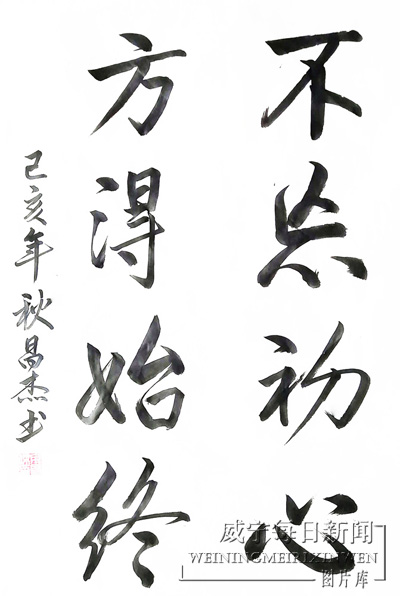 不忘初心
方得始终
己亥年秋昌杰书
威宁每日新闻
WEININGMEIRIXINWEN
图片库